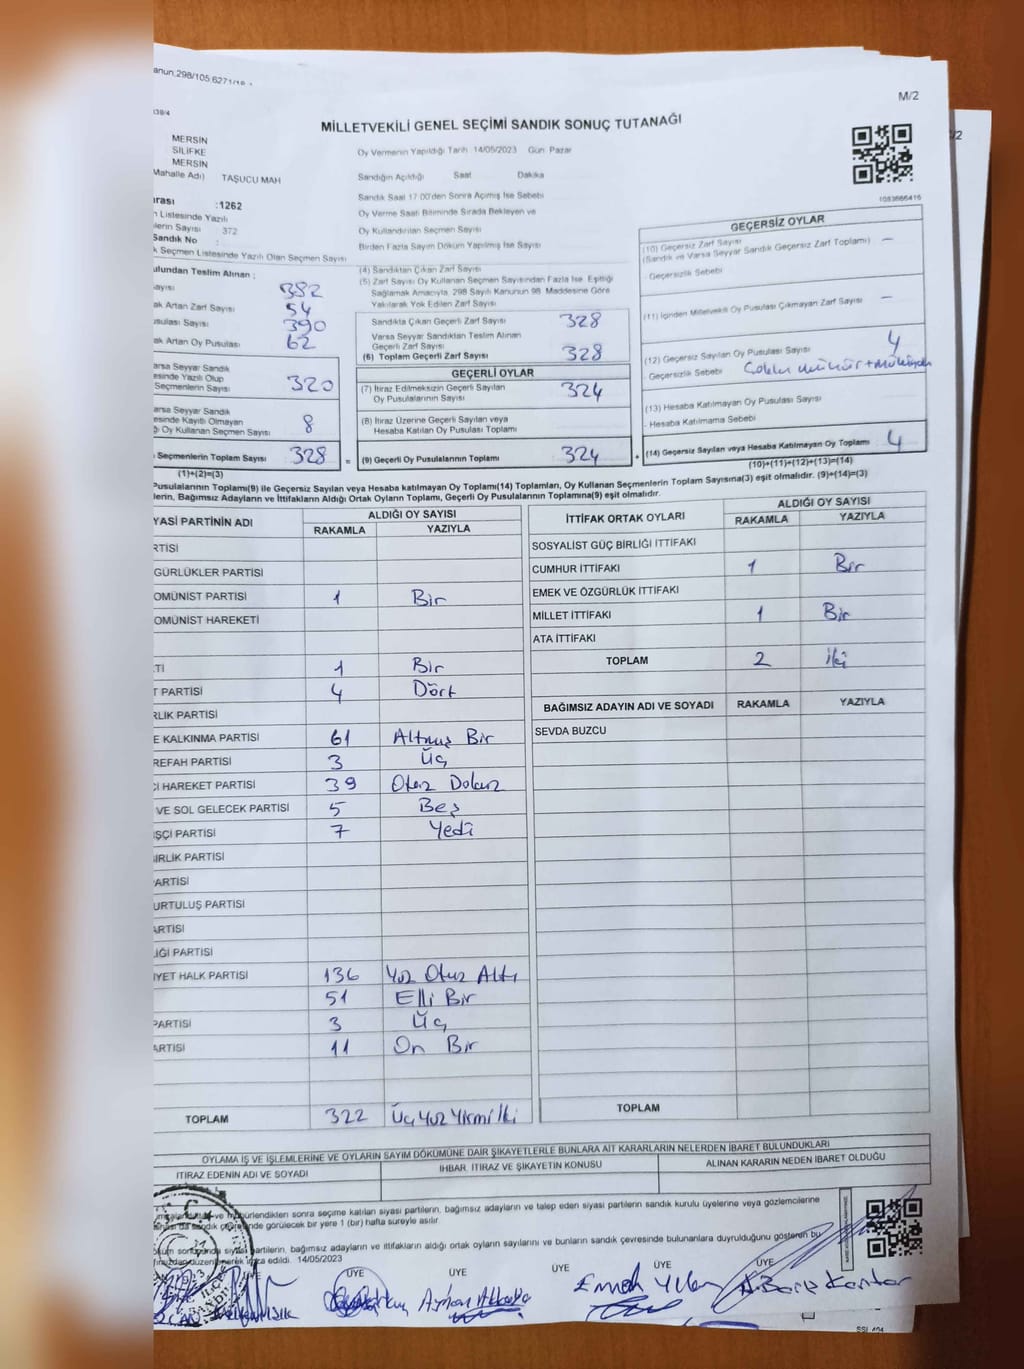 anun.298/105.6271/
M/2
/2
MİLLETVEKİLİ GENEL SEÇİMİ SANDIK SONUÇ TUTANAĞI
MERSİN
SİLİFKE
MERSİN
Mahalle Adı) TAŞUCU MAH
Oy Vermenin Yapıldığı Tarih 14/05/2023 Gün Pazar
Sandığın Açıldığı Saat Dakika
Sandık Saat 17.00'den Sonra Açılmış İse Sebebi
Oy Verme Saati Bitiminde Sırada Bekleyen ve
Oy Kullandırılan Seçmen Sayısı
Birden Fazla Sayım Döküm Yapılmış İse Sayısı
1083666416
ırası :1262
n Listesinde Yazılı
lerin Sayısı : 372
Sandık No :
k Seçmen Listesinde Yazılı Olan Seçmen Sayısı
ulundan Teslim Alınan ;
ayısı 382
ak Artan Zarf Sayısı 54
usulası Sayısı 390
ak Artan Oy Pusulası 62
arsa Seyyar Sandık
esinde Yazılı Olup
Seçmenlerin Sayısı 320
arsa Seyyar Sandık
esinde Kayıtlı Olmayan
ğı Oy Kullanan Seçmen Sayısı 8
Seçmenlerin Toplam Sayısı 328
(1)+(2)=(3)
(4) Sandıktan Çıkan Zarf Sayısı
(5) Zarf Sayısı Oy Kullanan Seçmen Sayısından Fazla İse, Eşitliği
Sağlamak Amacıyla, 298 Sayılı Kanunun 98. Maddesine Göre
Yakılarak Yok Edilen Zarf Sayısı
Sandıkta Çıkan Geçerli Zarf Sayısı 328
Varsa Seyyar Sandıktan Teslim Alınan
Geçerli Zarf Sayısı
(6) Toplam Geçerli Zarf Sayısı 328
GEÇERLİ OYLAR
(7) İtiraz Edilmeksizin Geçerli Sayılan
Oy Pusulalarının Sayısı 324
(8) İtiraz Üzerine Geçerli Sayılan veya
Hesaba Katılan Oy Pusulası Toplamı
= (9) Geçerli Oy Pusulalarının Toplamı 324 +
GEÇERSİZ OYLAR
(10) Geçersiz Zarf Sayısı –
(Sandık ve Varsa Seyyar Sandık Geçersiz Zarf Toplamı)
Geçersizlik Sebebi
(11) İçinden Milletvekili Oy Pusulası Çıkmayan Zarf Sayısı –
(12) Geçersiz Sayılan Oy Pusulası Sayısı 4
Geçersizlik Sebebi
(13) Hesaba Katılmayan Oy Pusulası Sayısı
Hesaba Katılmama Sebebi
(14) Geçersiz Sayılan veya Hesaba Katılmayan Oy Toplamı 4
(10)+(11)+(12)+(13)=(14)
Pusulalarının Toplamı(9) ile Geçersiz Sayılan veya Hesaba katılmayan Oy Toplamı(14) Toplamları, Oy Kullanan Seçmenlerin Toplam Sayısına(3) eşit olmalıdır. (9)+(14)=(3)
lerin, Bağımsız Adayların ve İttifakların Aldığı Ortak Oyların Toplamı, Geçerli Oy Pusulalarının Toplamına(9) eşit olmalıdır.
YASİ PARTİNİN ADI ALDIĞI OY SAYISI
RAKAMLA YAZIYLA
RTİSİ
GÜRLÜKLER PARTİSİ
OMÜNİST PARTİSİ 1 Bir
OMÜNİST HAREKETİ
Tİ 1 Bir
T PARTİSİ 4 Dört
RLİK PARTİSİ
E KALKINMA PARTİSİ 61 Altmış Bir
REFAH PARTİSİ 3 Üç
Çİ HAREKET PARTİSİ 39 Otuz Dokuz
VE SOL GELECEK PARTİSİ 5 Beş
İŞÇİ PARTİSİ 7 Yedi
İRLİK PARTİSİ
ARTİSİ
URTULUŞ PARTİSİ
ARTİSİ
LİĞİ PARTİSİ
İYET HALK PARTİSİ 136 Yüz Otuz Altı
51 Elli Bir
PARTİSİ 3 Üç
ARTİSİ 11 On Bir
TOPLAM 322 Üç Yüz Yirmi İki
İTTİFAK ORTAK OYLARI ALDIĞI OY SAYISI
RAKAMLA YAZIYLA
SOSYALİST GÜÇ BİRLİĞİ İTTİFAKI
CUMHUR İTTİFAKI 1 Bir
EMEK VE ÖZGÜRLÜK İTTİFAKI
MİLLET İTTİFAKI 1 Bir
ATA İTTİFAKI
TOPLAM 2 İki
BAĞIMSIZ ADAYIN ADI VE SOYADI RAKAMLA YAZIYLA
SEVDA BUZCU
TOPLAM
OYLAMA İŞ VE İŞLEMLERİNE VE OYLARIN SAYIM DÖKÜMÜNE DAİR ŞİKAYETLERLE BUNLARA AİT KARARLARIN NELERDEN İBARET BULUNDUKLARI
İTİRAZ EDENİN ADI VE SOYADI İHBAR, İTİRAZ VE ŞİKAYETİN KONUSU ALINAN KARARIN NEDEN İBARET OLDUĞU
mühürlendikten sonra seçime katılan siyasi partilerin, bağımsız adayların ve talep eden siyasi partilerin sandık kurulu üyelerine veya gözlemcilerine
sandık çevresinde görülecek bir yere 1 (bir) hafta süreyle asılır.
siyasi partilerin, bağımsız adayların ve ittifakların aldığı ortak oyların sayılarını ve bunların sandık çevresinde bulunanlara duyurulduğunu gösteren bu
düzenlenerek imza edildi. 14/05/2023
ÜYE ÜYE ÜYE ÜYE ÜYE